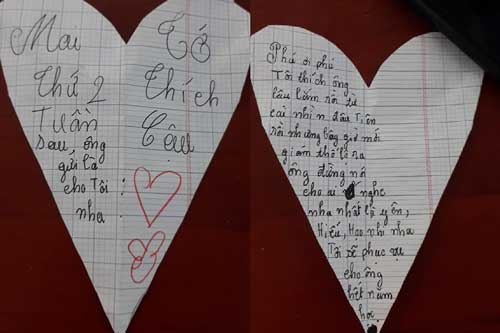 Mai
Thứ 2
Tuần
sau ông
gửi là
cho Tôi :
nha :
Tớ
Thích
Cậu
Phú ơi phú
Tôi thích ông
lâu lắm rồi từ
cái nhìn đầu Tiên
rồi nhưng bây giờ mới
giám thổ lộ ra
ông đừng nó
cho ai nghe
nha nhất là yên,
Hiếu, Hạo nhi nha
Tôi sẽ phục vụ
cho ông
hết năm
học